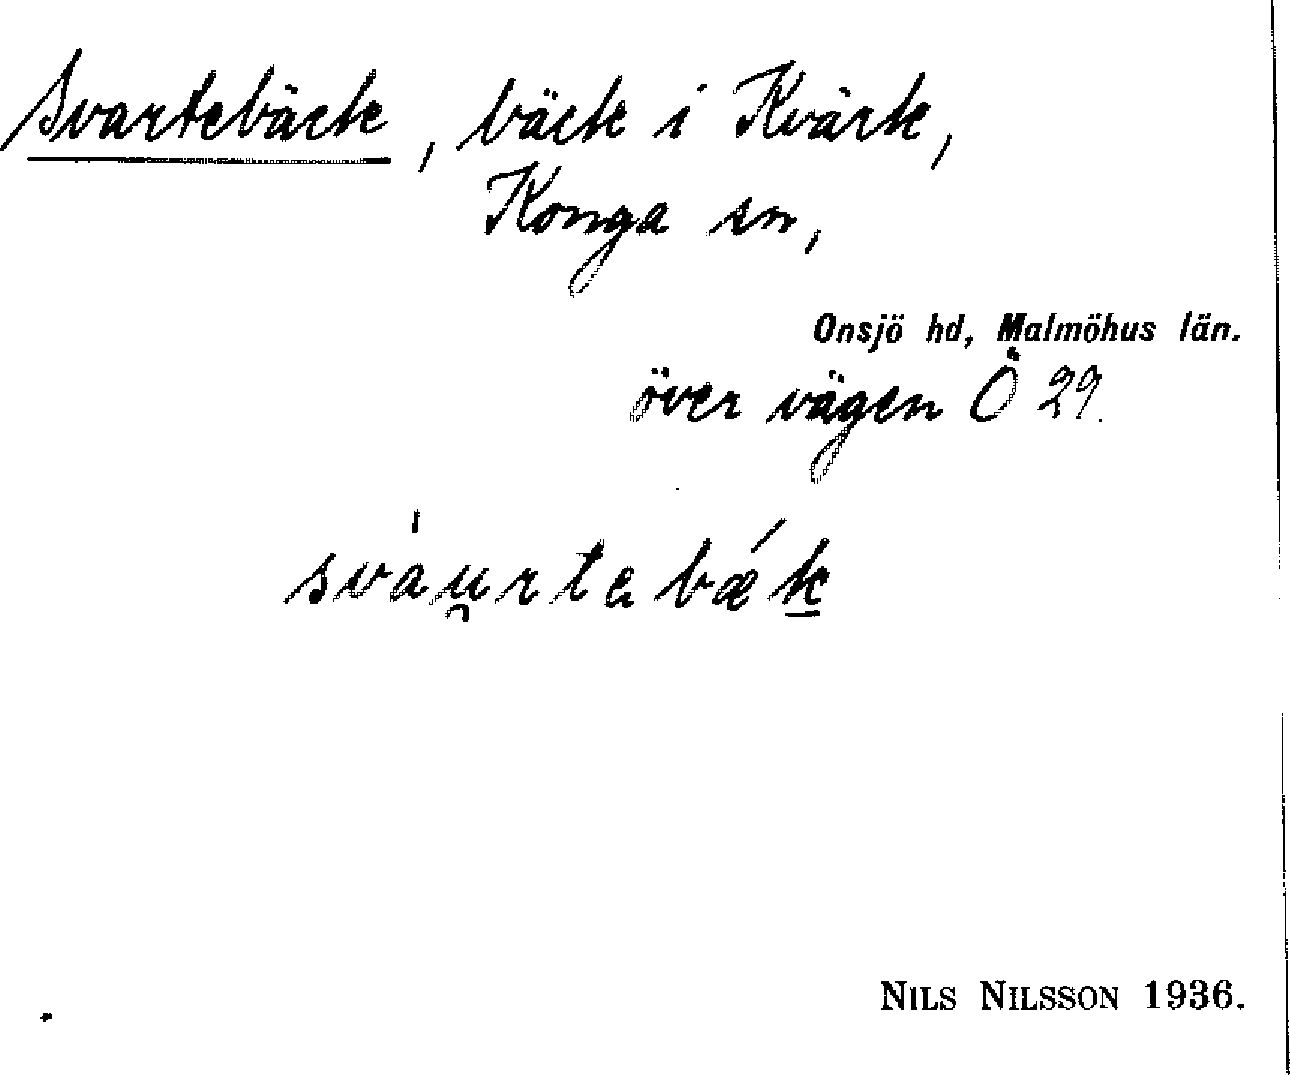 Svartebäck, bäck i Kvärk,
Konga sn,
Onsjö hd, Malmöhus län.
över vägen Ö 29.
sváu̯rtebǽk
NILS NILSSON 1936.